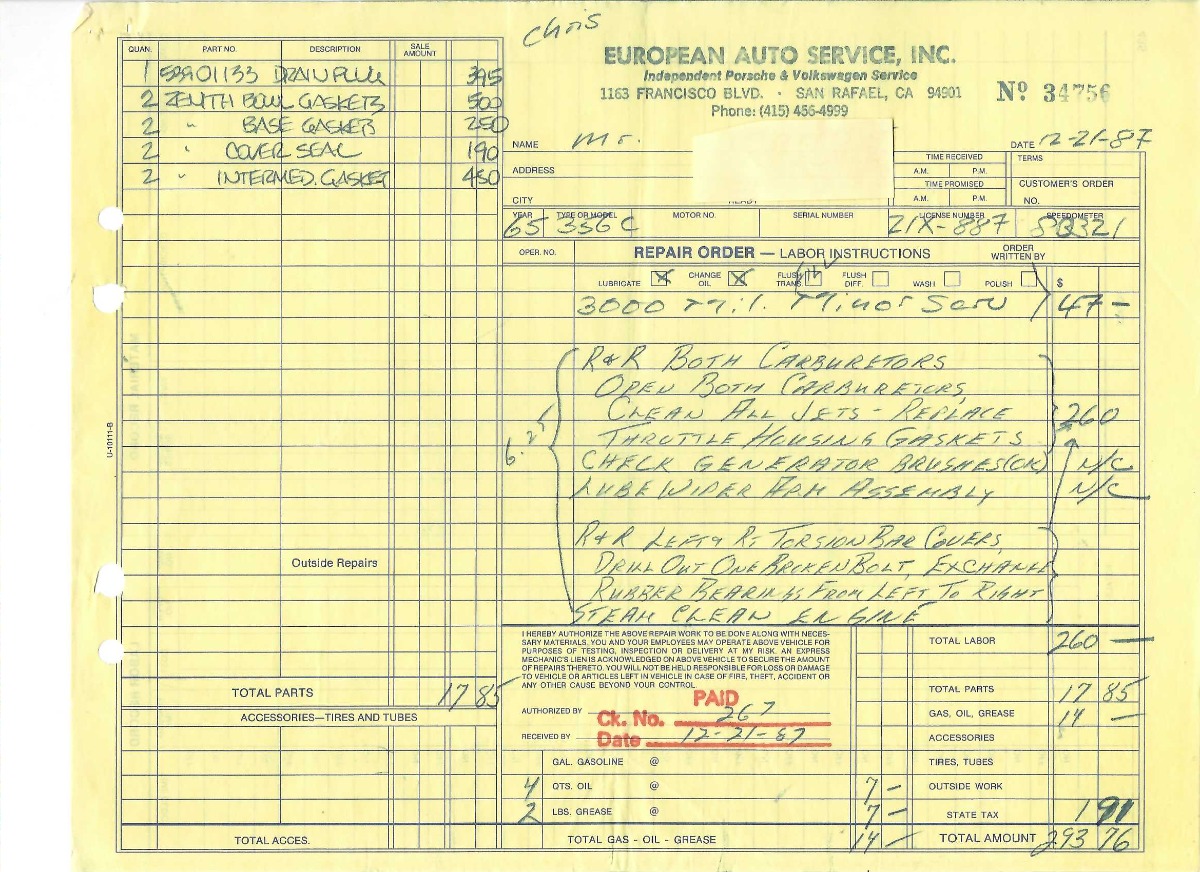 Chris
EUROPEAN AUTO SERVICE, INC.
Independent Porsche & Volkswagen Service
1163 FRANCISCO BLVD. · SAN RAFAEL, CA 94901
Phone: (415) 456-4999
Nº 34756
QUAN. PART NO. DESCRIPTION SALE AMOUNT
1 99901133 DRAIN PLUG 395
2 ZENITH BOWL GASKETS 500
2 " BASE GASKETS 250
2 " COVER SEAL 190
2 " INTERMED. GASKET 450
NAME Mr.
DATE 12-21-87
ADDRESS
CITY
TIME RECEIVED
A.M. P.M.
TIME PROMISED
A.M. P.M.
TERMS
CUSTOMER'S ORDER
NO.
YEAR TYPE OR MODEL MOTOR NO. SERIAL NUMBER LICENSE NUMBER SPEEDOMETER
65 356 C ZIX-887 80321
OPER. NO. REPAIR ORDER — LABOR INSTRUCTIONS ORDER WRITTEN BY
LUBRICATE X CHANGE OIL X FLUSH TRANS. FLUSH DIFF. WASH POLISH $
3000 Mil. Minor Serv 47 —
R&R BOTH CARBURETORS
OPEN BOTH CARBURETORS,
CLEAN ALL JETS - REPLACE 260
THROTTLE HOUSING GASKETS
6.25
CHECK GENERATOR BRUSHES (OK) N/C
LUBE WIPER ARM ASSEMBLY N/C
R&R LEFT & RT TORSION BAR COVERS,
DRILL OUT ONE BROKEN BOLT, EXCHANGE
RUBBER BEARINGS FROM LEFT TO RIGHT
STEAM CLEAN ENGINE
U-10111-B
Outside Repairs
TOTAL PARTS 17 85
ACCESSORIES—TIRES AND TUBES
TOTAL ACCES.
I HEREBY AUTHORIZE THE ABOVE REPAIR WORK TO BE DONE ALONG WITH NECES-
SARY MATERIALS. YOU AND YOUR EMPLOYEES MAY OPERATE ABOVE VEHICLE FOR
PURPOSES OF TESTING, INSPECTION OR DELIVERY AT MY RISK. AN EXPRESS
MECHANIC'S LIEN IS ACKNOWLEDGED ON ABOVE VEHICLE TO SECURE THE AMOUNT
OF REPAIRS THERETO. YOU WILL NOT BE HELD RESPONSIBLE FOR LOSS OR DAMAGE
TO VEHICLE OR ARTICLES LEFT IN VEHICLE IN CASE OF FIRE, THEFT, ACCIDENT OR
ANY OTHER CAUSE BEYOND YOUR CONTROL.
PAID
AUTHORIZED BY
Ck. No. 267
RECEIVED BY
Date 12-21-87
GAL. GASOLINE @
4 QTS. OIL @ 7 —
2 LBS. GREASE @ 7 —
TOTAL GAS - OIL - GREASE 14 —
TOTAL LABOR 260 —
TOTAL PARTS 17 85
GAS, OIL, GREASE 14 —
ACCESSORIES
TIRES, TUBES
OUTSIDE WORK
STATE TAX 1 91
TOTAL AMOUNT 293 76